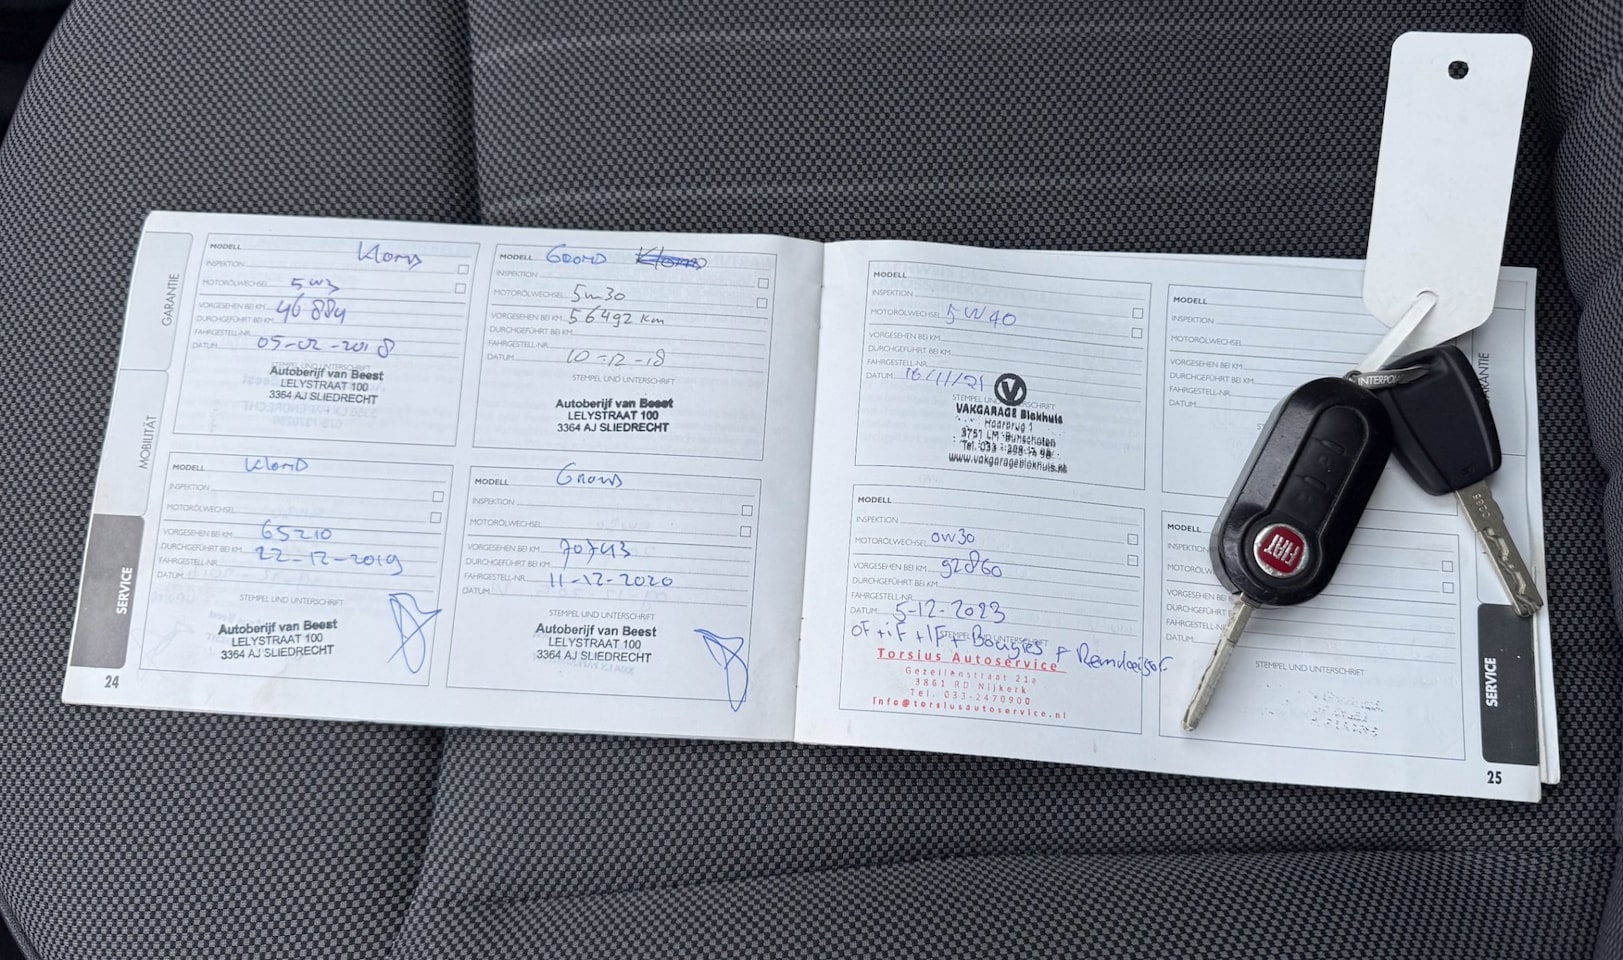 GARANTIE
MOBILITÄT
SERVICE
24
MODELL
INSPEKTION
MOTORÖLWECHSEL
VORGESEHEN BEI KM 46884
DURCHGEFÜHRT BEI KM
FAHRGESTELL-NR.
DATUM 05-02-2018
STEMPEL UND UNTERSCHRIFT
Autoberijf van Beest
LELYSTRAAT 100
3364 AJ SLIEDRECHT
MODELL GROND
INSPEKTION
MOTORÖLWECHSEL 5W30
VORGESEHEN BEI KM 56492 km
DURCHGEFÜHRT BEI KM
FAHRGESTELL-NR.
DATUM 10-12-18
STEMPEL UND UNTERSCHRIFT
Autoberijf van Beest
LELYSTRAAT 100
3364 AJ SLIEDRECHT
MODELL
INSPEKTION
MOTORÖLWECHSEL
VORGESEHEN BEI KM 65210
DURCHGEFÜHRT BEI KM 22-12-2019
FAHRGESTELL-NR.
DATUM
STEMPEL UND UNTERSCHRIFT
Autoberijf van Beest
LELYSTRAAT 100
3364 AJ SLIEDRECHT
MODELL GROND
INSPEKTION
MOTORÖLWECHSEL
VORGESEHEN BEI KM 70743
DURCHGEFÜHRT BEI KM
FAHRGESTELL-NR. 11-12-2020
DATUM
STEMPEL UND UNTERSCHRIFT
Autoberijf van Beest
LELYSTRAAT 100
3364 AJ SLIEDRECHT
MODELL
INSPEKTION
MOTORÖLWECHSEL 5W40
VORGESEHEN BEI KM
DURCHGEFÜHRT BEI KM
FAHRGESTELL-NR.
DATUM 16/11/21
STEMPEL UND UNTERSCHRIFT
V
VAKGARAGE Blokhuis
Haarbrug 1
3751 LM Bunschoten
www.vakgarageblokhuis.nl
MODELL
INSPEKTION
MOTORÖLWECHSEL 0W30
VORGESEHEN BEI KM 92860
DURCHGEFÜHRT BEI KM
FAHRGESTELL-NR.
DATUM 5-12-2023
OF + iF + IF + Bougies +
STEMPEL UND UNTERSCHRIFT
Torsius Autoservice
Gezellenstraat 21a
3861 RD Nijkerk
Tel. 033-2470900
Info@torsiusautoservice.nl
MODELL
INSPEKTION
MOTORÖLWECHSEL
VORGESEHEN BEI KM
DURCHGEFÜHRT BEI KM
FAHRGESTELL-NR.
DATUM
MODELL
DATUM
STEMPEL UND UNTERSCHRIFT
FIAT
SERVICE
25